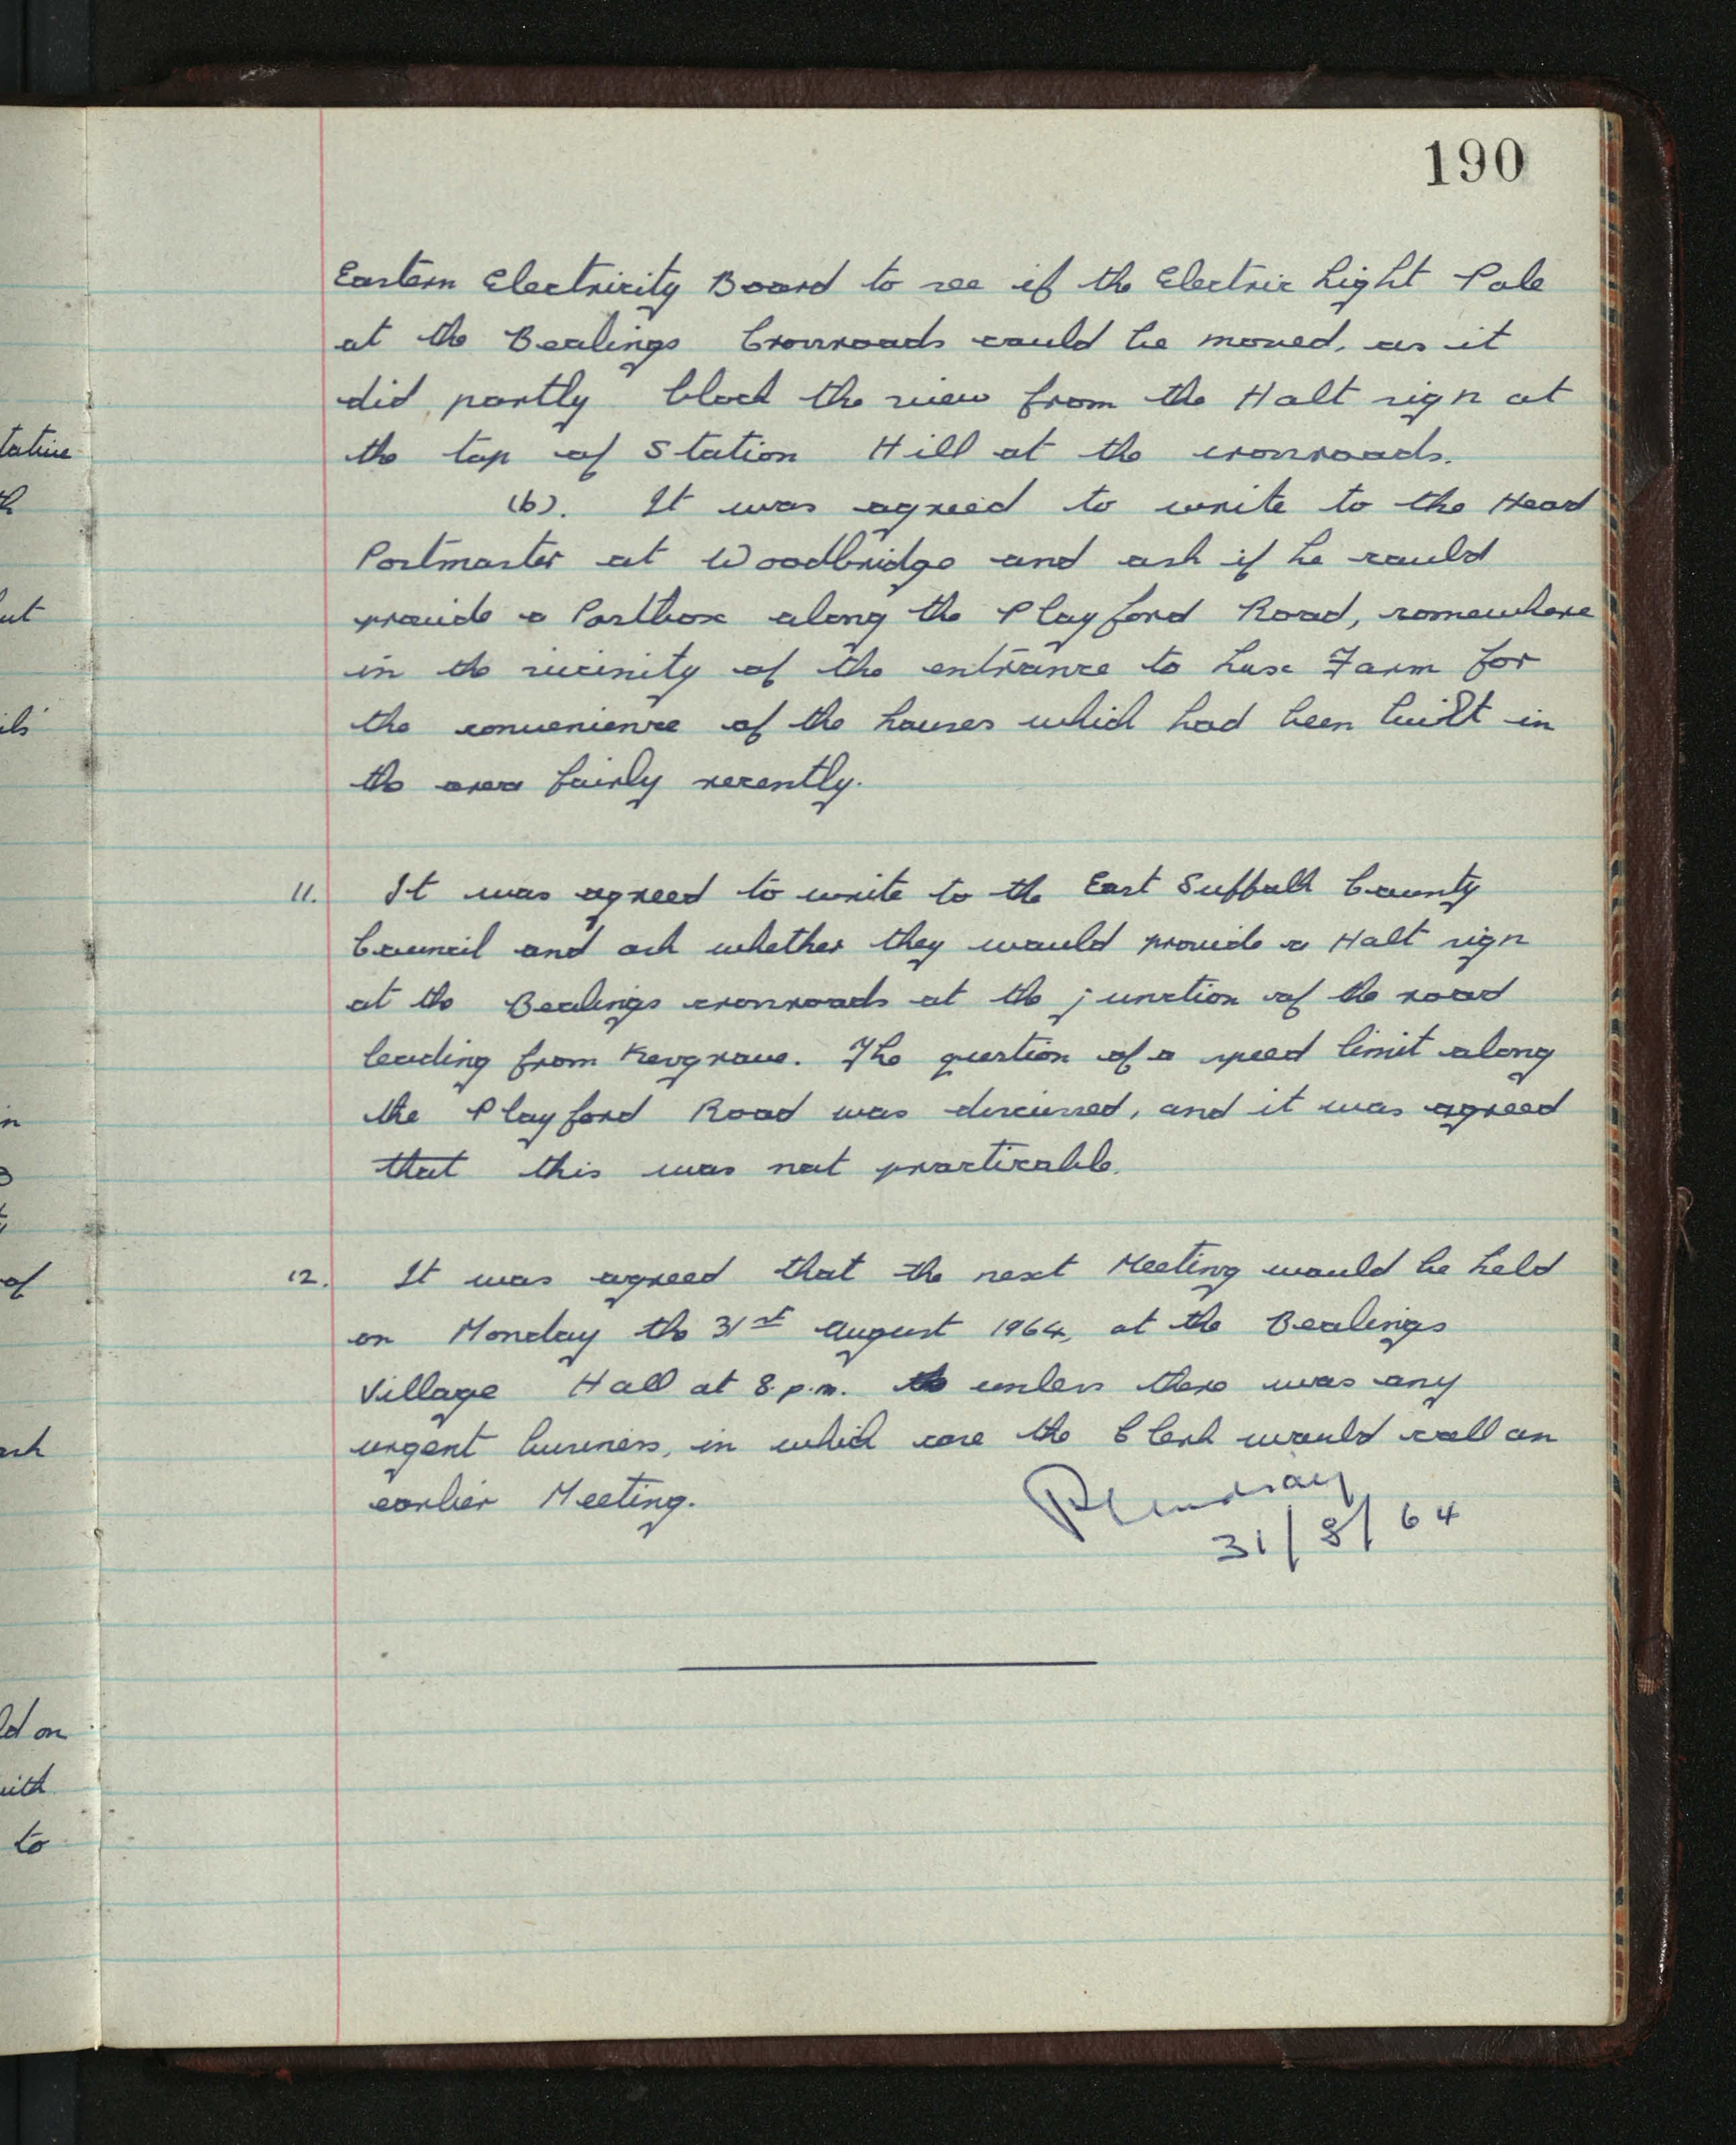 190
Eastern Electricity Board to see if the Electric Light Pole
at the Bealings Crossroads could be moved, as it
did partly block the view from the Halt sign at
the top of Station Hill at the crossroads.
(b). It was agreed to write to the Head
Postmaster at Woodbridge and ask if he could
provide a Postbox along the Playford Road, somewhere
in the vicinity of the entrance to Lux Farm for
the convenience of the houses which had been built in
the area fairly recently.
11. It was agreed to write to the East Suffolk County
Council and ask whether they would provide a Halt sign
at the Bealings crossroads at the junction of the road
leading from Kesgrave. The question of a speed limit along
the Playford Road was discussed, and it was agreed
that this was not practicable.
12. It was agreed that the next Meeting would be held
on Monday the 31st August 1964, at the Bealings
Village Hall at 8.p.m. unless there was any
urgent business, in which case the Clerk would call an
earlier Meeting.
31/8/64
ut
in
of
ld on
with
to